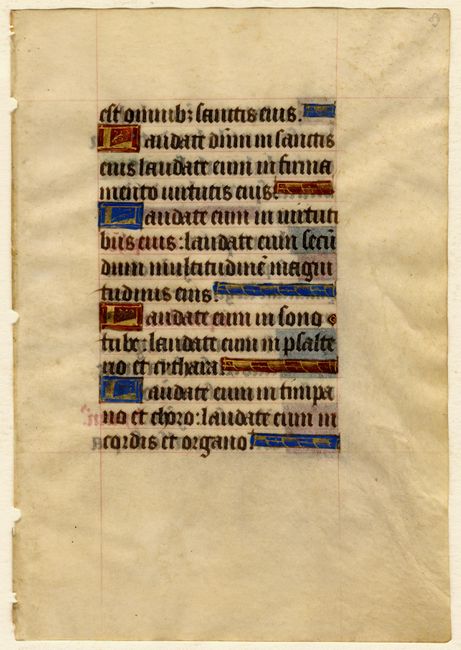 est omnib; sanctis eius.
Laudate dūm in sanctis
eius laudate eum in firma
mento virtutis eius.
Laudate eum in virtuti
bus eius: laudate eum secū
dum multitudinē magni
tudinis eius.
Laudate eum in sono
tube: laudate eum in psalte
rio et cythara.
Laudate eum in timpa
no et choro: laudate eum in
cordis et organo.